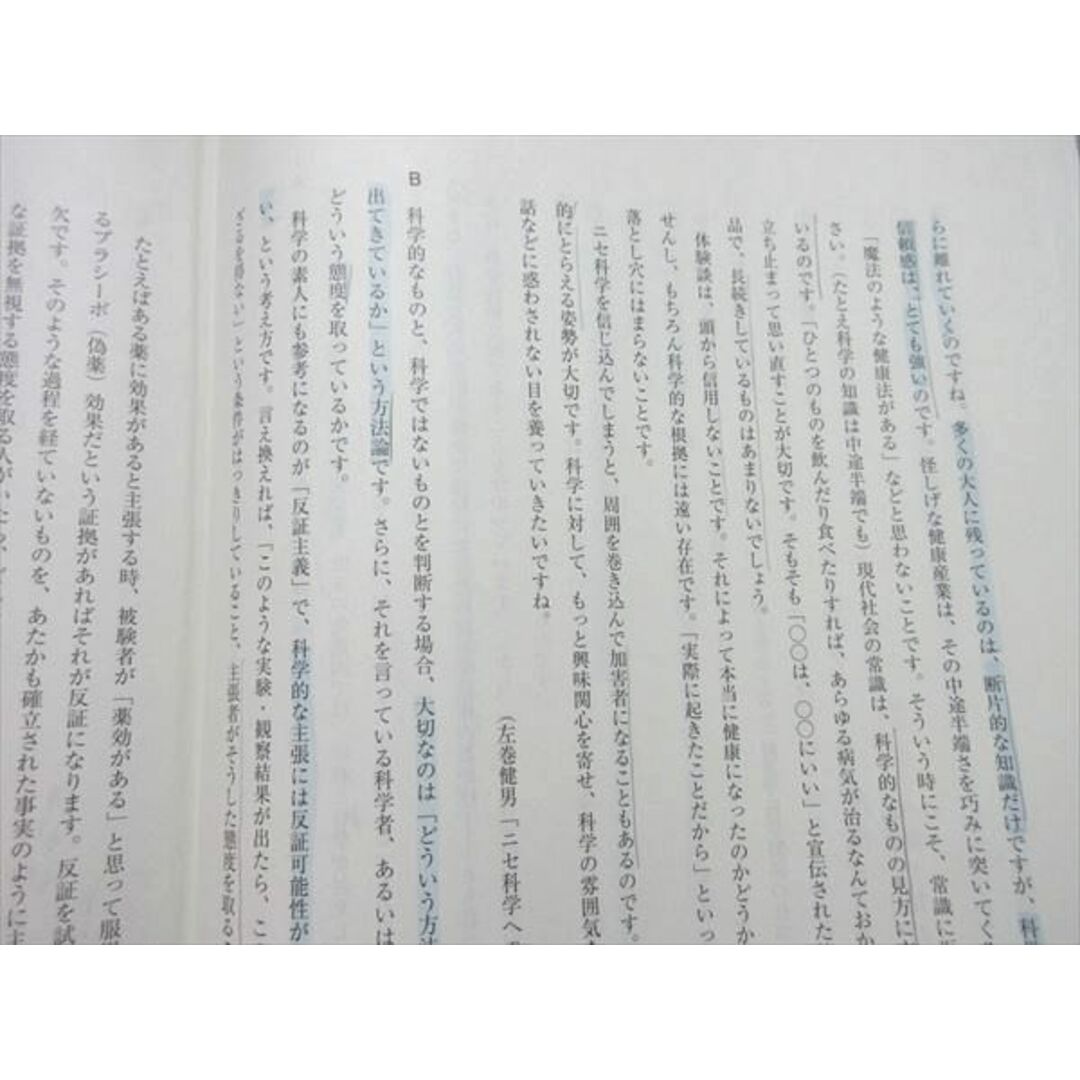 らに離れていくのですね。多くの大人に残っているのは、断片的な知識だけですが、科
信頼感は、とても強いのです。怪しげな健康産業は、その中途半端さを巧みに突いてく
「魔法のような健康法がある」などと思わないことです。そういう時にこそ、常識に
さい。(たとえ科学の知識は中途半端でも)現代社会の常識は、科学的なものの見方に
いるのです。「ひとつのものを飲んだり食べたりすれば、あらゆる病気が治るなんておか
立ち止まって思い直すことが大切です。そもそも「〇〇は、〇〇にいい」と宣伝された
品で、長続きしているものはあまりないでしょう。
体験談は、頭から信用しないことです。それによって本当に健康になったのかどうか
せんし、もちろん科学的な根拠には遠い存在です。「実際に起きたことだから」といっ
落とし穴にはまらないことです。
ニセ科学を信じ込んでしまうと、周囲を巻き込んで加害者になることもあるのです。
的にとらえる姿勢が大切です。科学に対して、もっと興味関心を寄せ、科学の雰囲気
話などに惑わされない目を養っていきたいですね。
(左巻健男「ニセ科学へ
B 科学的なものと、科学ではないものとを判断する場合、大切なのは「どういう方法
出てきているか」という方法論です。さらに、それを言っている科学者、あるいは
どういう態度を取っているかです。
科学の素人にも参考になるのが「反証主義」で、科学的な主張には反証可能性が
い、という考え方です。言え換えれば、「このような実験・観察結果が出たら、こ
ざるを得ない」という条件がはっきりしていること、主張者がそうした態度を取る
たとえばある薬に効果があると主張する時、被験者が「薬効がある」と思って服
るプラシーボ(偽薬)効果だという証拠があればそれが反証になります。反証を試
欠です。そのような過程を経ていないものを、あたかも確立された事実のように主
な証拠を無視する態度を取る人がいたら、